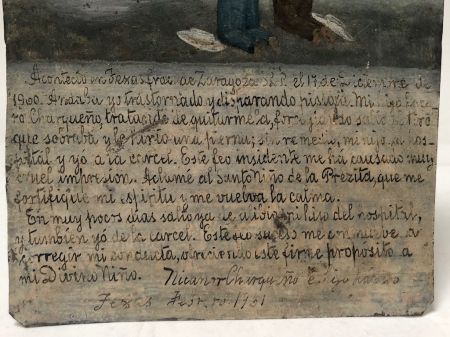 Acontecio en Texas frac. de Zaragoza S.L.P. el 17 de Diciembre de
1900. Andaba yo trastornado y disparando pistola. Mi hijo
ro Charqueño, tratase de quitarmela, forcejiando salio un tiro
que sobraba y le hirio una pierna; sin remedio, mi hijo al hos-
pital y yo a la carcel. Este feo insidente me há causado muy
cruel impresion. Aclamé al Santo niño de la Prezita, que me
fortifique mi espiritu y me vuelva la calma.
En muy pocos dias salio ya de alivio mi hijo del hospital,
y también yó de la carcel. Este feo suceso me conmueve a
corregir mi conducta, ofreciendo este firme proposito a
mi Divino Niño. Nicanor Charqueño E hijo
Texas Febrero 1901